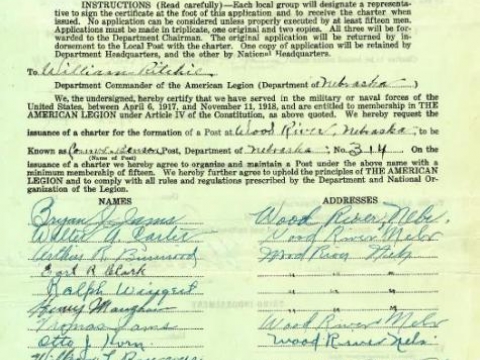 INSTRUCTIONS (Read carefully)—Each local group will designate a representa-
tive to sign the certificate at the foot of this application and to receive the charter when
issued. No application can be considered unless properly executed by at least fifteen men.
Applications must be made in triplicate, one original and two copies. All three will be
forwarded to the Department Chairman. The original application will be returned by in-
dorsement to the Local Post with the charter. One copy of application will be retained by
Department Headquarters, and the other by National Headquarters.
To William Ritchie
Department Commander of the American Legion (Department of Nebraska)
We, the undersigned, hereby certify that we have served in the military or naval forces of the
United States, between April 6, 1917, and November 11, 1918, and are entitled to membership in THE
AMERICAN LEGION under Article IV of the Constitution, as above quoted. We hereby request the
issuance of a charter for the formation of a Post at Wood River, Nebraska, to be
Known as Post, Department of Nebraska: No. 314 On the
(Name of Post)
issuance of a charter we hereby agree to organize and maintain a Post under the above name with a
minimum membership of fifteen. We hereby further agree to uphold the principles of THE AMERICAN
LEGION and to comply with all rules and regulations prescribed by the Department and National Or-
ganization of the Legion.
NAMES ADDRESSES
Bryan J. Jams Wood River, Nebr.
Walter Wood River Nebr
Arthur R. Wood River Neb
Earl R Clark " " "
Ralph Wingert " " "
Henry " " "
Thomas Jams Wood River Nebr
Otto J. Horn Wood River Neb.